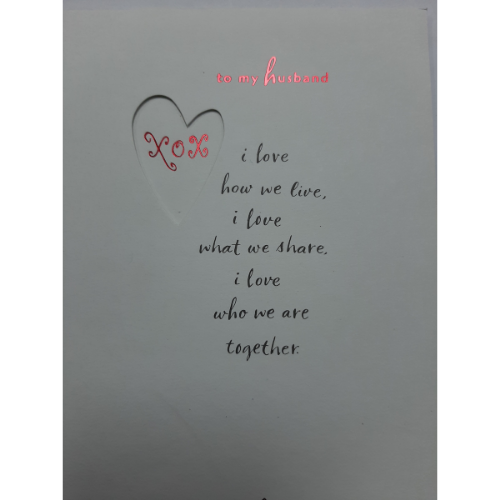 to my husband
XOX
i love
how we live,
i love
what we share,
i love
who we are
together.